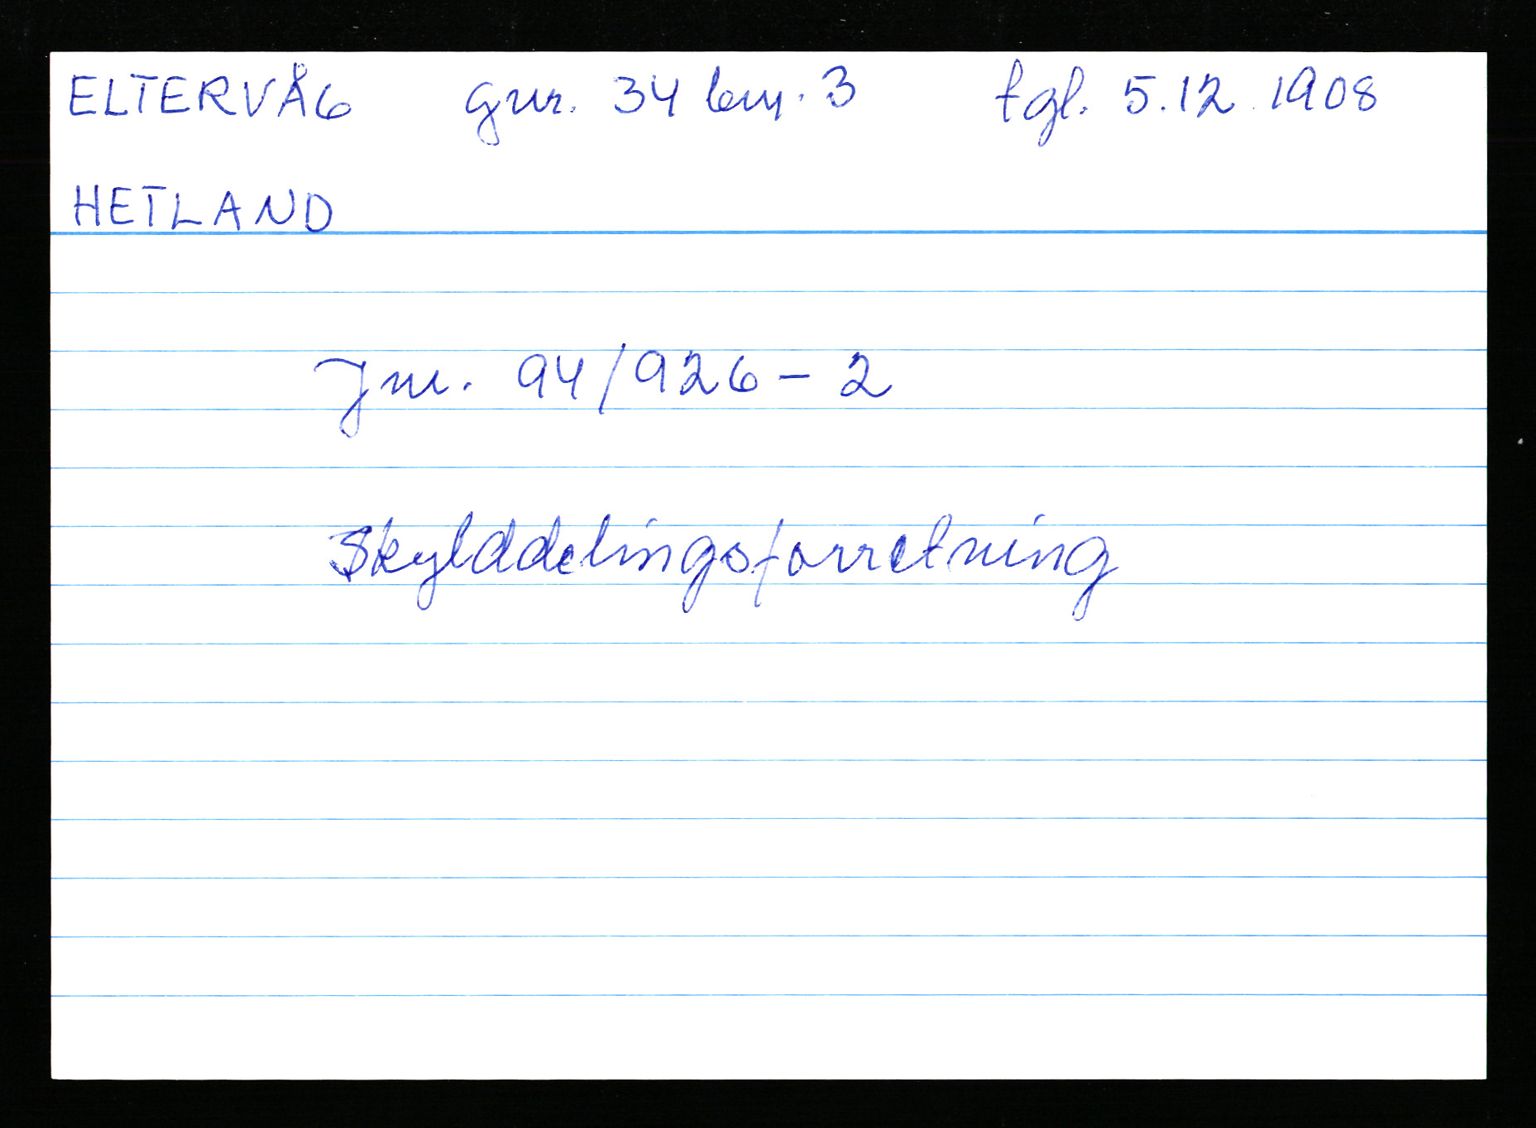 ELTERVÅG gnr. 34 bnr. 3 tgl. 5.12.1908
HETLAND
Jnr. 94/926-2
Skylddelingsforretning